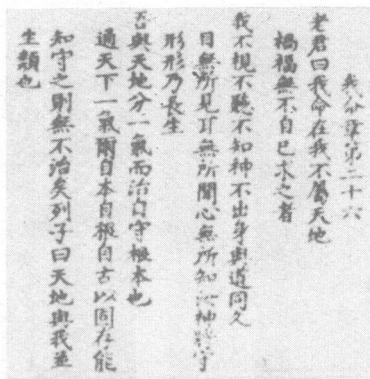 我命章第二十六
老君曰我命在我不屬天地
禍福無不自己求之者
我不視不聽不知神不出身與道同久
目無所見耳無所聞心無所知汝神將守
形形乃長生
吾與天地分一氣而治自守根本也
通天下一氣爾自本自根自古以固存能
知守之則無不治矣列子曰天地與我並
生類也